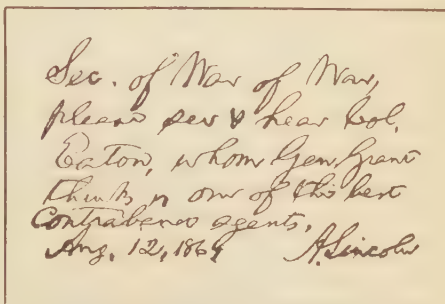 Sec. of War of War,
please see & hear Col.
Eaton, whom Gen. Grant
thinks is one of his best
contraband agents.
Aug. 12, 1864 A. Lincoln